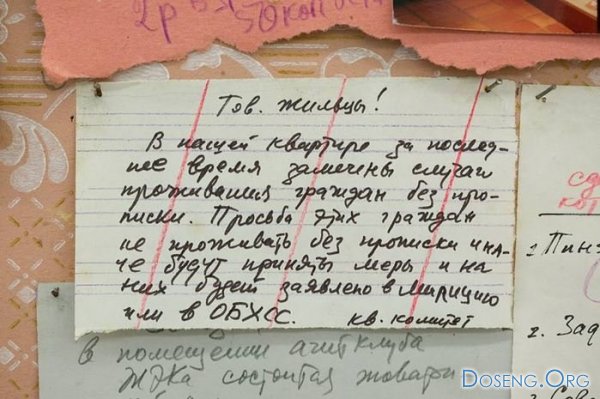 2р
50 коп
Тов. жильцы!
В нашей квартире за послед-
нее время замечены случаи
проживания граждан без про-
писки. Просьба этих граждан
не проживать без прописки ина-
че будут приняты меры и на
них будет заявлено в милицию
или в ОБХСС. кв. комитет
в помещении агитклуба
ЖЭКа состоится
1 Пин
2. Зад
Doseng.Org